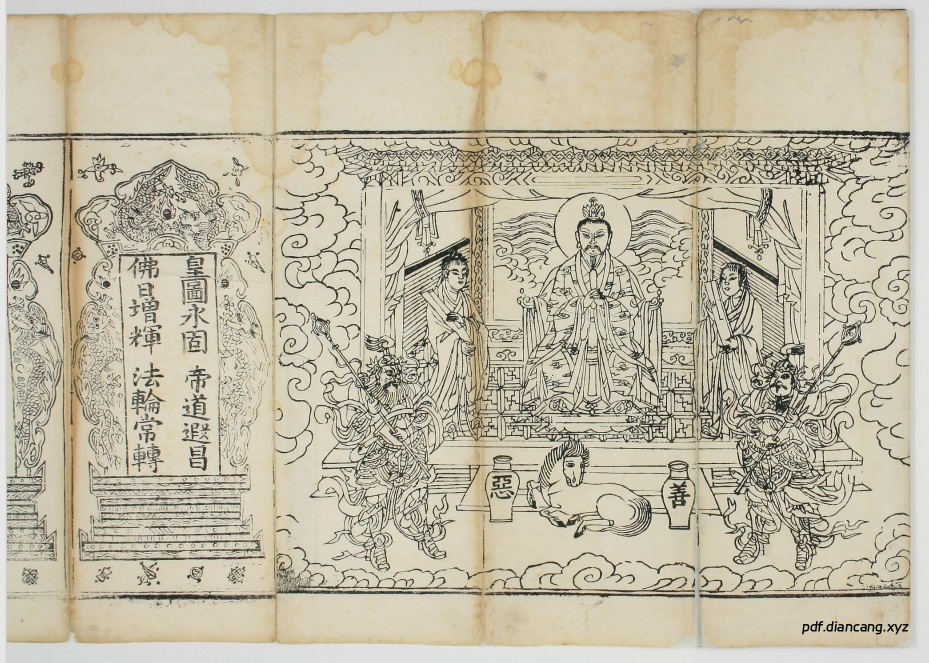 皇圖永固 帝道遐昌
佛日增輝 法輪常轉
惡
善
pdf.diancang.xyz